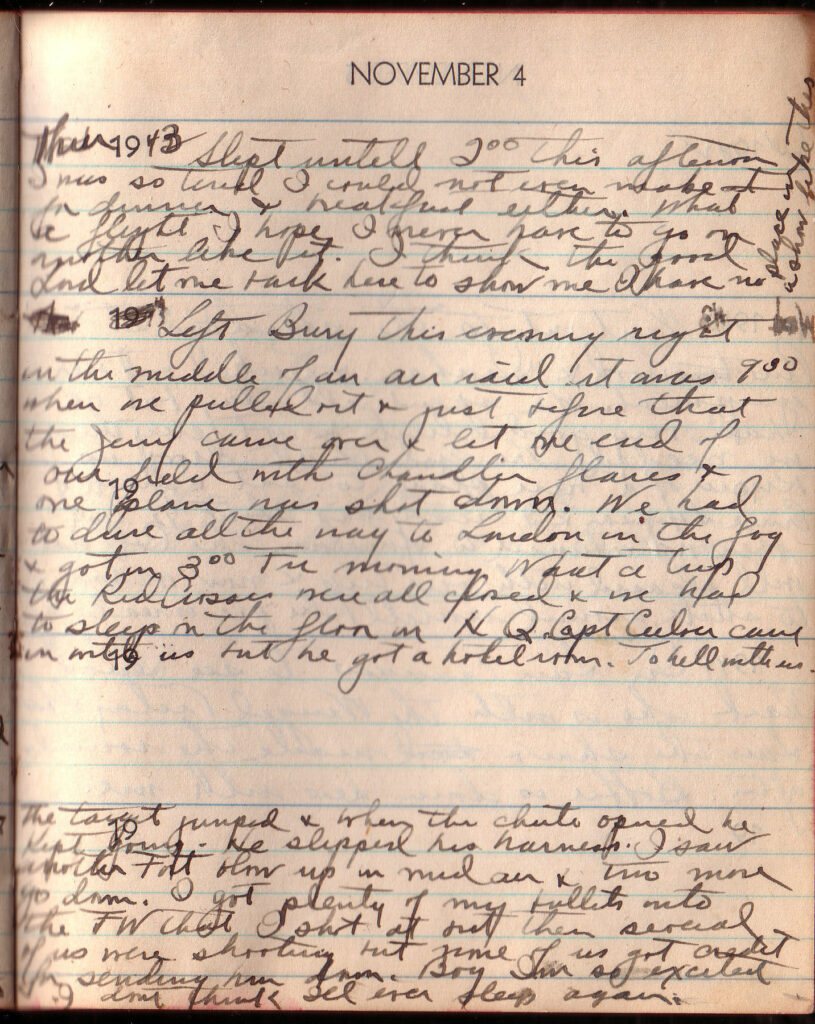 NOVEMBER 4
Thur 1943 Slept untill 2⁰⁰ this afternoon
I was so tired I could not even make it
for dinner & breakfast either. What
a flight I hope I never have to go on
another like it. I think the good
Lord let me back here to show me I have no
place in
a show like this
19 Left Bury this evening right
in the middle of an air raid it was 9⁰⁰
when we pulled out & just before that
the Jerry came over & let one end of
our field with Chandlier flares &
19
one plane was shot down. We had
to drive all the way to London in the fog
& got in 3⁰⁰ The morning What a trip
the Red Crosses were all closed & we had
to sleep on the floor in H Q. Capt Culver came
in with us but he got a hotel room. To hell with us.
19
the target jumped & when the chute opened he
19
kept going. He slipped his harness. I saw
another Fort blow up in mid air & two more
go down. I got plenty of my bullets into
the FW that I shot at but then several
of us were shooting but none of us got credit
for sending him down. Boy I'm so excited
I dont think Ill ever sleep again.